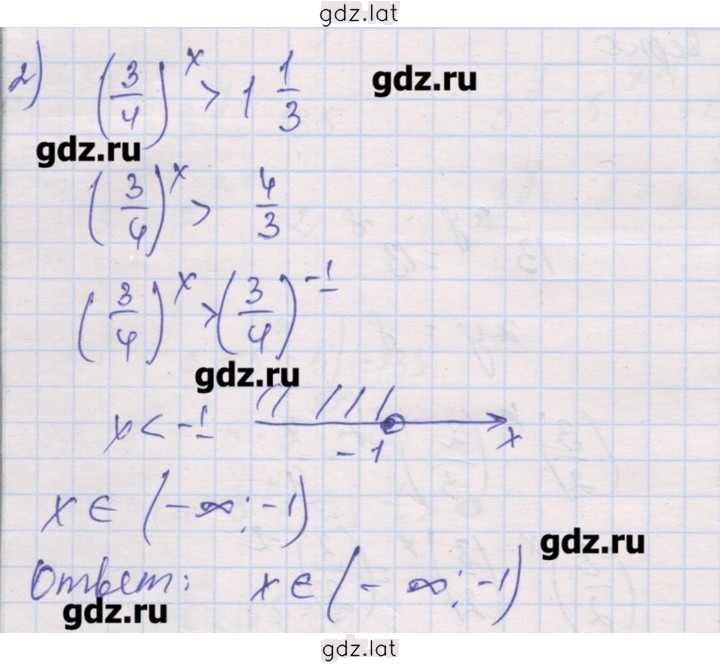 gdz.lat
2) (3/4)^x > 1 1/3
gdz.ru
gdz.ru
(3/4)^x > 4/3
(3/4)^x > (3/4)^-1
gdz.ru
x < -1
-1 x
x ∈ (-∞; -1)
gdz.ru
Ответ: x ∈ (-∞; -1)
gdz.ru
gdz.lat